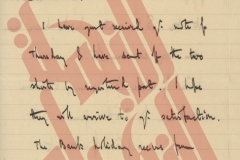 I have just received yr note of
Thursday & have sent off the two
shirts by registered post. I hope
they will arrive to yr satisfaction.
The Bank holiday recess from